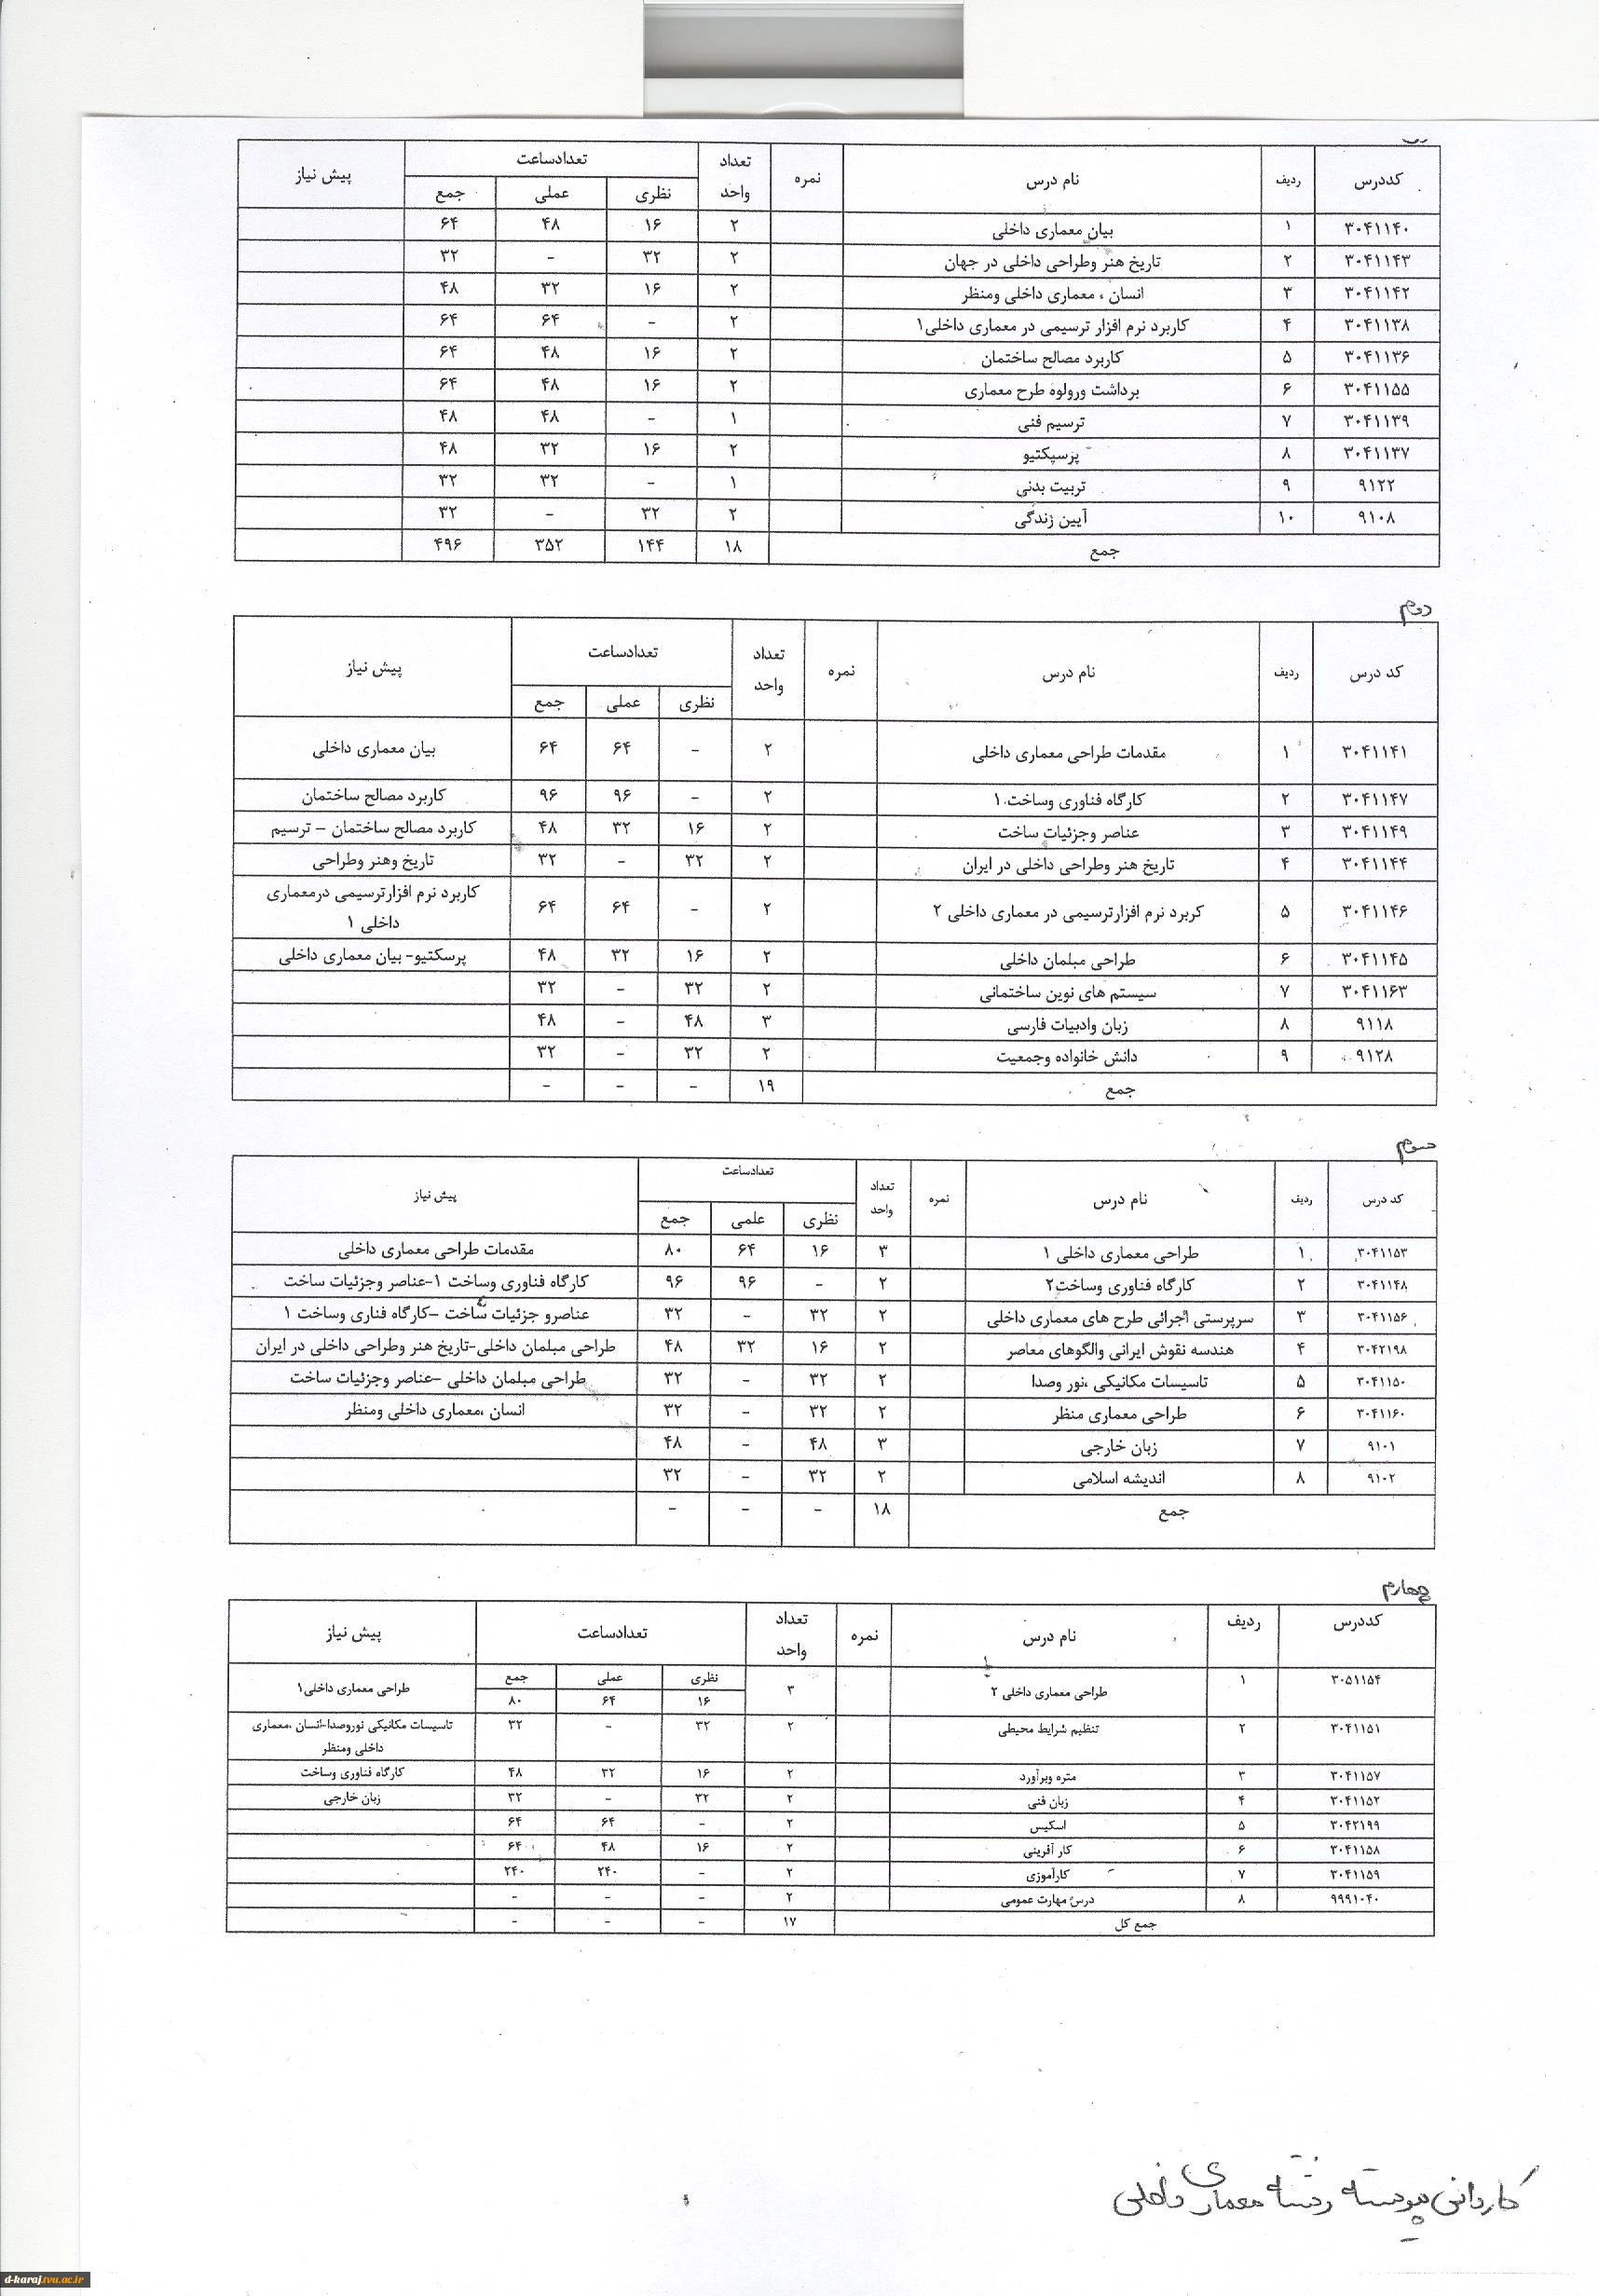 کددرس ردیف نام درس نمره تعداد واحد تعدادساعت پیش نیاز
نظری عملی جمع
۳۰۴۱۱۴۰ ۱ بیان معماری داخلی ۲ ۱۶ ۴۸ ۶۴
۳۰۴۱۱۴۳ ۲ تاریخ هنر وطراحی داخلی در جهان ۲ ۳۲ - ۳۲
۳۰۴۱۱۴۲ ۳ انسان ، معماری داخلی ومنظر ۲ ۱۶ ۳۲ ۴۸
۳۰۴۱۱۳۸ ۴ کاربرد نرم افزار ترسیمی در معماری داخلی۱ ۲ - ۶۴ ۶۴
۳۰۴۱۱۳۶ ۵ کاربرد مصالح ساختمان ۲ ۱۶ ۴۸ ۶۴
۳۰۴۱۱۵۵ ۶ برداشت ورولوه طرح معماری ۲ ۱۶ ۴۸ ۶۴
۳۰۴۱۱۳۹ ۷ ترسیم فنی ۱ - ۴۸ ۴۸
۳۰۴۱۱۳۷ ۸ پرسپکتیو ۲ ۱۶ ۳۲ ۴۸
۹۱۲۲ ۹ تربیت بدنی ۱ - ۳۲ ۳۲
۹۱۰۸ ۱۰ آیین زندگی ۲ ۳۲ - ۳۲
جمع ۱۸ ۱۴۴ ۳۵۲ ۴۹۶
دوم
کد درس ردیف نام درس نمره تعداد واحد تعدادساعت پیش نیاز
نظری عملی جمع
۳۰۴۱۱۴۱ ۱ مقدمات طراحی معماری داخلی ۲ - ۶۴ ۶۴ بیان معماری داخلی
۳۰۴۱۱۴۷ ۲ کارگاه فناوری وساخت۱ ۲ - ۹۶ ۹۶ کاربرد مصالح ساختمان
۳۰۴۱۱۴۹ ۳ عناصر وجزئیات ساخت ۲ ۱۶ ۳۲ ۴۸ کاربرد مصالح ساختمان – ترسیم
۳۰۴۱۱۴۴ ۴ تاریخ هنر وطراحی داخلی در ایران ۲ ۳۲ - ۳۲ تاریخ وهنر وطراحی
۳۰۴۱۱۴۶ ۵ کربرد نرم افزارترسیمی در معماری داخلی ۲ ۲ - ۶۴ ۶۴ کاربرد نرم افزارترسیمی درمعماری داخلی ۱
۳۰۴۱۱۴۵ ۶ طراحی مبلمان داخلی ۲ ۱۶ ۳۲ ۴۸ پرسکتیو- بیان معماری داخلی
۳۰۴۱۱۶۳ ۷ سیستم های نوین ساختمانی ۲ ۳۲ - ۳۲
۹۱۱۸ ۸ زبان وادبیات فارسی ۳ ۴۸ - ۴۸
۹۱۲۸ ۹ دانش خانواده وجمعیت ۲ ۳۲ - ۳۲
جمع ۱۹ - - -
سوم
کد درس ردیف نام درس نمره تعداد واحد تعدادساعت پیش نیاز
نظری علمی جمع
۳۰۴۱۱۵۳ ۱ طراحی معماری داخلی ۱ ۳ ۱۶ ۶۴ ۸۰ مقدمات طراحی معماری داخلی
۳۰۴۱۱۴۸ ۲ کارگاه فناوری وساخت۲ ۲ - ۹۶ ۹۶ کارگاه فناوری وساخت ۱-عناصر وجزئیات ساخت
۳۰۴۱۱۵۶ ۳ سرپرستی اجرائی طرح های معماری داخلی ۲ ۳۲ - ۳۲ عناصرو جزئیات ساخت –کارگاه فناری وساخت ۱
۳۰۴۲۱۹۸ ۴ هندسه نقوش ایرانی والگوهای معاصر ۲ ۱۶ ۳۲ ۴۸ طراحی مبلمان داخلی-تاریخ هنر وطراحی داخلی در ایران
۳۰۴۱۱۵۰ ۵ تاسیسات مکانیکی ،نور وصدا ۲ ۳۲ - ۳۲ طراحی مبلمان داخلی –عناصر وجزئیات ساخت
۳۰۴۱۱۶۰ ۶ طراحی معماری منظر ۲ ۳۲ - ۳۲ انسان ،معماری داخلی ومنظر
۹۱۰۱ ۷ زبان خارجی ۳ ۴۸ - ۴۸
۹۱۰۲ ۸ اندیشه اسلامی ۲ ۳۲ - ۳۲
جمع ۱۸ - - -
چهارم
کددرس ردیف نام درس نمره تعداد واحد تعدادساعت پیش نیاز
نظری عملی جمع
۳۰۵۱۱۵۴ ۱ طراحی معماری داخلی ۲ ۳ ۱۶ ۶۴ ۸۰ طراحی معماری داخلی۱
۳۰۴۱۱۵۱ ۲ تنظیم شرایط محیطی ۲ ۳۲ - ۳۲ تاسیسات مکانیکی نوروصدا-انسان ،معماری داخلی ومنظر
۳۰۴۱۱۵۷ ۳ متره وبرآورد ۲ ۱۶ ۳۲ ۴۸ کارگاه فناوری وساخت
۳۰۴۱۱۵۲ ۴ زبان فنی ۲ ۳۲ - ۳۲ زبان خارجی
۳۰۴۲۱۹۹ ۵ اسکیس ۲ - ۶۴ ۶۴
۳۰۴۱۱۵۸ ۶ کار آفرینی ۲ ۱۶ ۴۸ ۶۴
۳۰۴۱۱۵۹ ۷ کارآموزی ۲ - ۲۴۰ ۲۴۰
۹۹۹۱۰۴۰ ۸ درس مهارت عمومی ۲ - - -
جمع کل ۱۷ - - -
کاردانی پیوسته رشته معماری داخلی
d-karaj.tvu.ac.ir